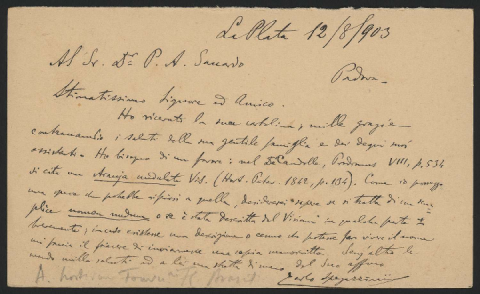 La Plata 12/8/903
Al Sr. Dr. P. A. Saccardo
Padova
Stimatissimo Signore ed Amico.
Ho ricevuto la sua cartolina, mille grazie
contracambio i saluti della sua gentile famiglia e dei degni suoi
assistenti. Ho bisogno di un favore: nel DeCandolle, Prodromus VIII, p. 534
si cita una Araujia undulata Vis. (Hort. Patav. 1842, p. 134). Come io
una specie che potrebbe riferirsi a quella, desidererei sapere se si tratta di un
plice nomen nudum o se è stata descritta dal Visiani in qualche parte
in caso esistesse una descrizione o cenno che potesse far vivere il nome
mi faccia il piacere di inviarmene una copia manoscritta. Senz'altro la
mando mille saluti ed a lei una stretta di mano del Suo affmo
Carlo Spegazzini